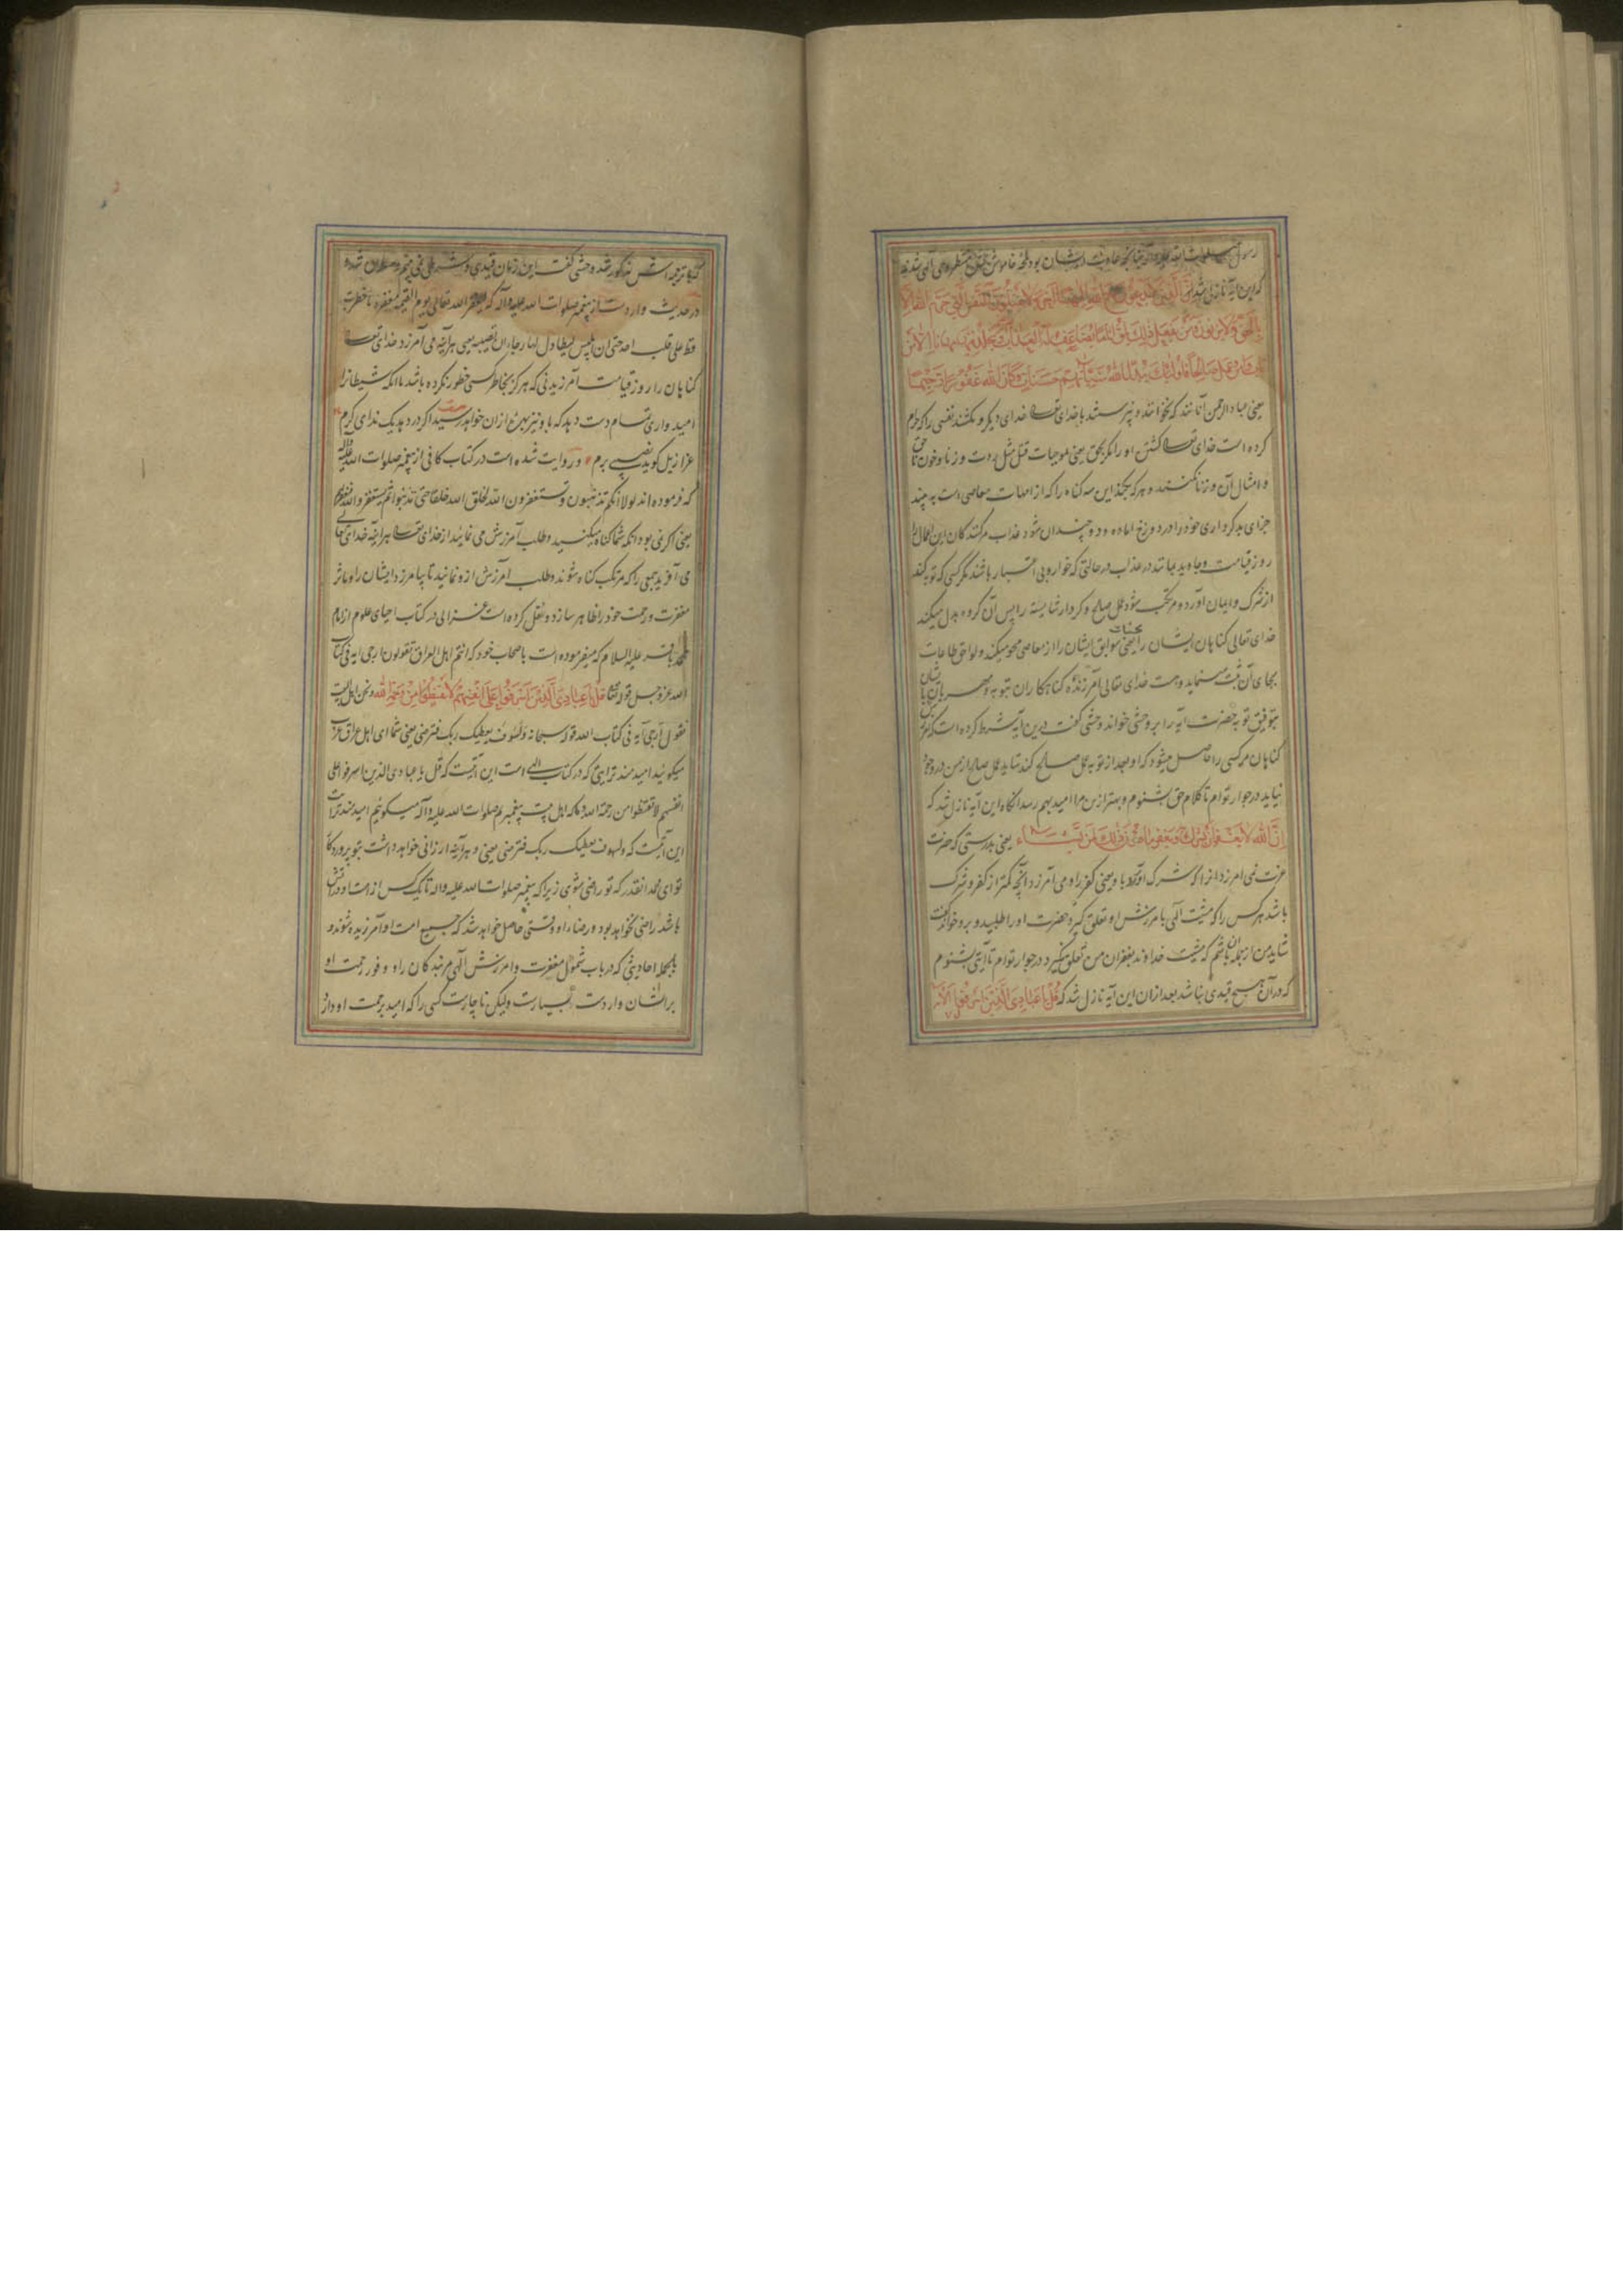 رسول صلوات الله علیه وآله چنانچه عادت ایشان بود لمحهٔ خاموش گشته منتظر وحی الهی شدند
که این آیه نازل شد والذین لا یدعون مع الله الها آخر ولا یقتلون النفس التی حرم الله الا
بالحق ولا یزنون ومن یفعل ذلک یلق اثاما یضاعف له العذاب ویخلد فیه مهانا الا من
تاب وامن وعمل صالحا فاولئک یبدل الله سیئاتهم حسنات وکان الله غفورا رحیما
یعنی عباد الرحمن آنانند که نخوانند و نپرستند با خدای تعالی خدای دیگر و نکشند نفسی را که حرام
کرده است خدای تعالی کشتن او را مگر بحق یعنی موجبات قتل مثل ردت و زنا و خون ناحق
و امثال آن و زنا نکنند و هر که بکند این سه گناه را که از امهات معاصی است به بیند
جزای بد کرداری خود را و در دوزخ اماده و دو چندان شود عذاب مر کنندکان این اعمال را
روز قیامت و جاوید بماند در عذاب در حالتی که خوار و بی اعتبار باشند مگر کسی که توبه کند
از شرک و ایمان آورد و مرتکب شود عمل صالح و کردار شایسته را پس آن گروه بدل میکند
خدای تعالی کناهان ایشان را بحسنات یعنی سوابق ایشان را از معاصی محو میکند و لواحق طاعات
بجای آن ثبت مینماید و هست خدای تعالی آمرزنده کناهکاران بتوبه و مهربان بایشان
بتوفیق توبه حضرت آیه را بر وحشی خواند وحشی گفت درین آیه شرط کرده است که آمرزش
کناهان مر کسی را حاصل میشود که او بعد از توبه عمل صالح کند شاید عمل صالح از من در وجود
نیاید در جوار توام تا کلام حق بشنوم و بهتر ازین مرا امید بهم رسد انگاه این آیه نازل شد که
ان الله لا یغفر ان یشرک به ویغفر ما دون ذلک لمن یشاء یعنی بدرستی که حضرت
عزت نمی امرزد انرا که شرک آورد با و یعنی کفر را و می آمرزد آنچه کمتر از کفر و شرک
باشد هر کس را که مشیت الهی بامرزش او تعلق گیرد حضرت او را طلبید و برو خواند گفت
شاید من از جمله آنان باشم که مشیت خداوند بغفران من تعلق نگیرد در جوار توام تا آیتی بشنوم
که در آن هیچ قیدی نباشد بعد از ان این آیه نازل شد که قل یا عبادی الذین اسرفوا الایه
که با ترجمه اش مذکور شد وحشی گفت این زمان قیدی و شرطی نمی بینم و مسلمان شد و
در حدیث وارد است از پیغمبر صلوات الله علیه وآله که لیغفر الله تعالی یوم القیمة مغفرة ما خطرت
قط علی قلب احد حتی ان ابلیس لیتطاول لها رجاء ان تصیبه یعنی هر آینه می آمرزد خدای تعالی
کناهان را روز قیامت آمرزیدنی که هرگز بخاطر کسی خطور نکرده باشد تا انکه شیطان را
امیدواری تمام دست دهد که با و نیز بهرهٔ از ان خواهد رسید اگر در دهد یک ندای کرم
عزازیل گوید نصیبی برم و روایت شده است در کتاب کافی از پیغمبر صلوات الله علیه وآله
که فرموده اند لولا انکم تذنبون وتستغفرون الله لخلق الله خلقا حتی یذنبوا ثم یستغفروا الله فیغفر لهم
یعنی اگر نمی بود آنکه شما گناه میکنید و طلب آمرزش می نمائید از خدای تعالی هر آینه خدای تعالی
می آفرید جمعی را که مرتکب کناه شوند و طلب آمرزش از و نمایند تا بیامرزد ایشان را و ماثر
مغفرت و رحمت خود را ظاهر سازد و نقل کرده است غزالی در کتاب احیای علوم از امام
محمد باقر علیه السلام که میفرموده است باصحاب خود که انتم اهل العراق تقولون ارجی ایه فی کتاب
الله عز وجل قوله تعالی قل یا عبادی الذین اسرفوا علی انفسهم لا تقنطوا من رحمة الله ونحن اهل البیت
نقول ارجی آیه فی کتاب الله قوله سبحانه ولسوف یعطیک ربک فترضی یعنی شما ای اهل عراق عرب
میکوئید امیدمندترایتی که در کتاب الهی است این آیتست که قل یا عبادی الذین اسرفوا علی
انفسهم لا تقنطوا من رحمة الله و ما که اهل بیت پیغمبریم صلوات الله علیه وآله میگوئیم امیدمندترآیت
این آیتست که ولسوف یعطیک ربک فترضی یعنی و هر آینه ارزانی خواهد داشت بتو پروردکار
تو ای محمد انقدر که تو راضی شوی زیرا که پیغمبر صلوات الله علیه واله تا یک کس از امت او در آتش
باشد راضی نخواهد بود و رضاء او وقتی حاصل خواهد شد که جمیع امت او آمرزیده شوند و
بالجمله احادیثی که در باب شمول مغفرت و امرزش آلهی مر بندکان را و وفور رحمت او
بر ایشان وارد است بسیارست ولیکن ناچارست کسی را که امید برحمت او دارد